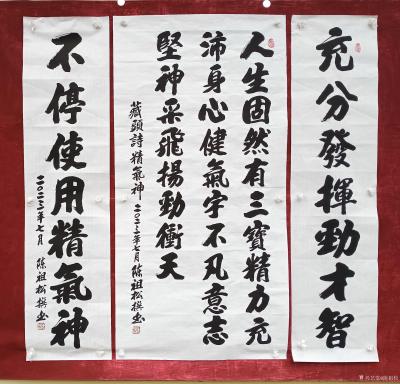 充分發揮勁才智
人生固然有三寶精力充
沛身心健氣宇不凡意志
堅神采飛揚勁衝天
藏頭詩精氣神 二〇二三年七月 陈祖松撰书
不停使用精氣神
二〇二三年七月 陈祖松撰书